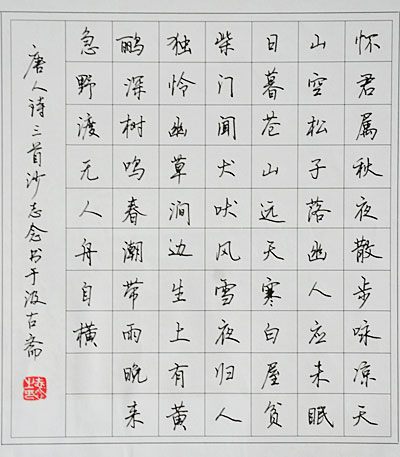 怀君属秋夜散步咏凉天
山空松子落幽人应未眠
日暮苍山远天寒白屋贫
柴门闻犬吠风雪夜归人
独怜幽草涧边生上有黄
鹂深树鸣春潮带雨晚来
急野渡无人舟自横
唐人诗三首沙志念书于汲古斋